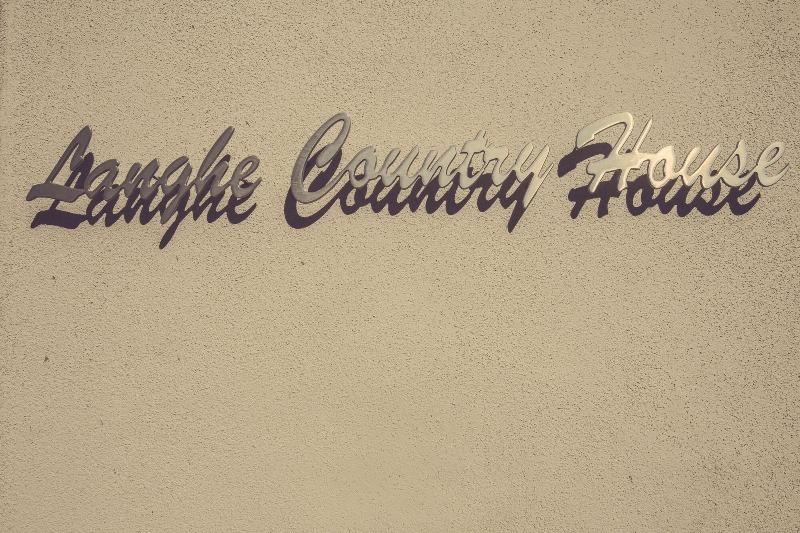 Langhe Country House